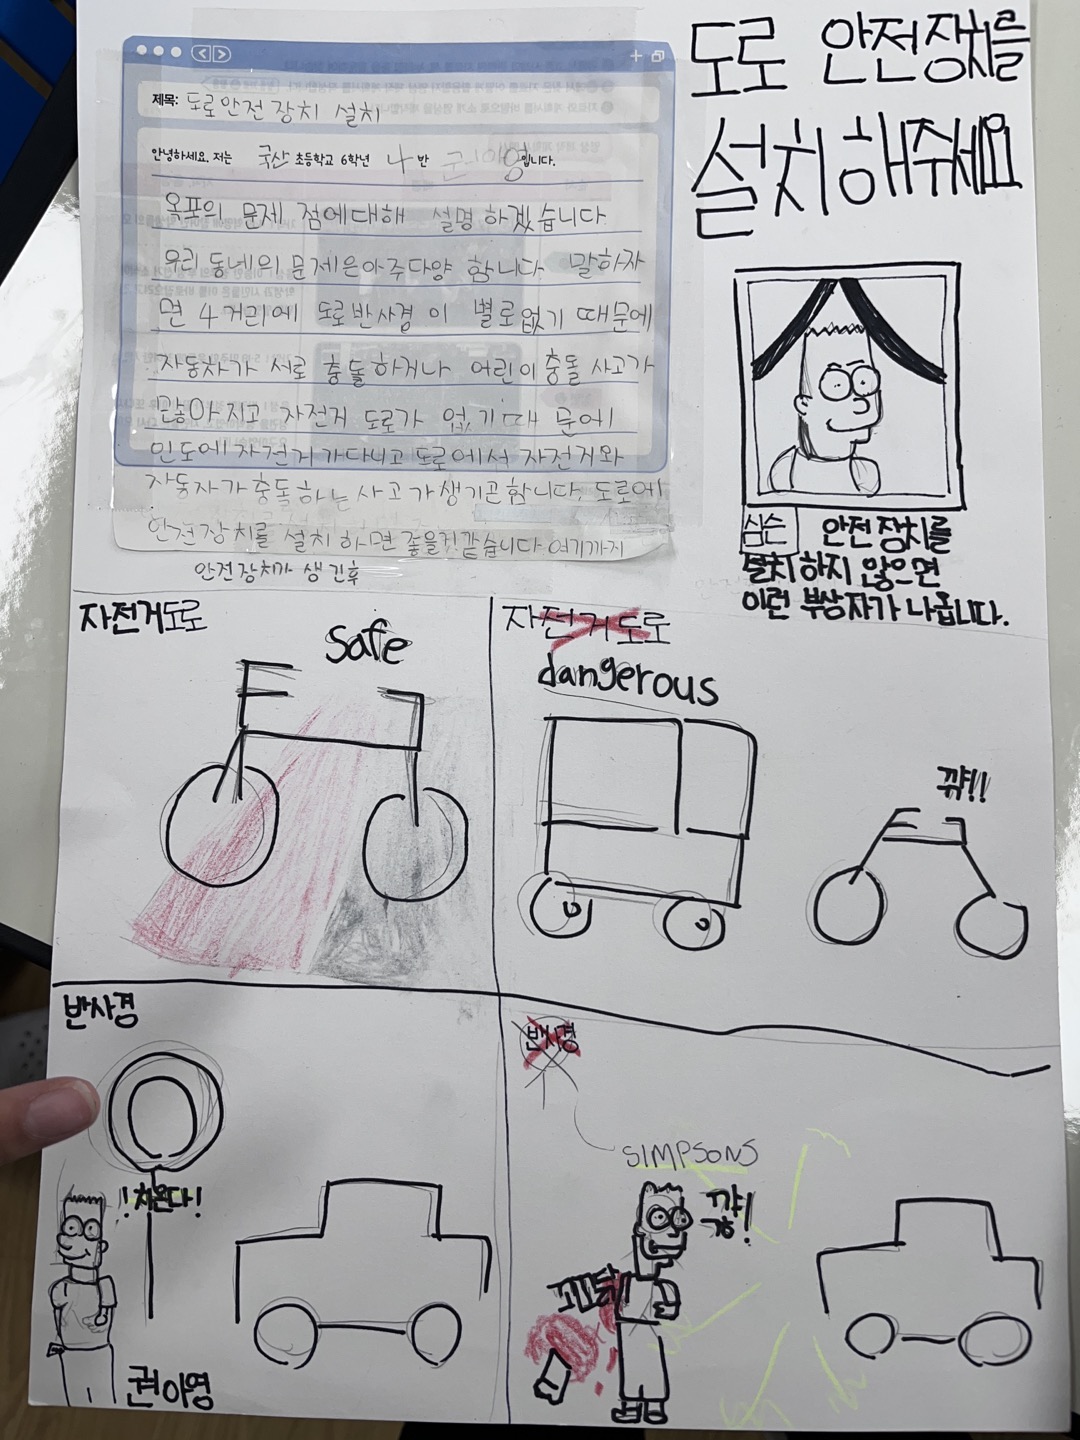 도로 안전장치를
설치해주세요
제목: 도로안전장치 설치
안녕하세요. 저는 국산 초등학교 6학년 나 반 권아영입니다.
옥포의 문제 점에대해 설명 하겠습니다
우리 동네의 문제은아주다양 합니다 말하자
면 4거리에 도로반사경 이 별로없기 때문에
자동차가 서로 충돌하거나 어린이충돌 사고가
많아지고 자전거 도로가 없기때 문에
인도에자전거가다니고 도로에선 자전거와
자동차가충돌하는 사고가생기곤합니다. 도로에
안전장치를 설치 하면 좋을것같습니다 여기까지
안전장치가 생긴후
심슨 안전장치를
설치하지 않으면
이런 부상자가 나옵니다.
자전거도로
safe
자전거도로
dangerous
꺆!!
반사경
! 차온다!
권아영
반사경
SIMPSONS
꺅!